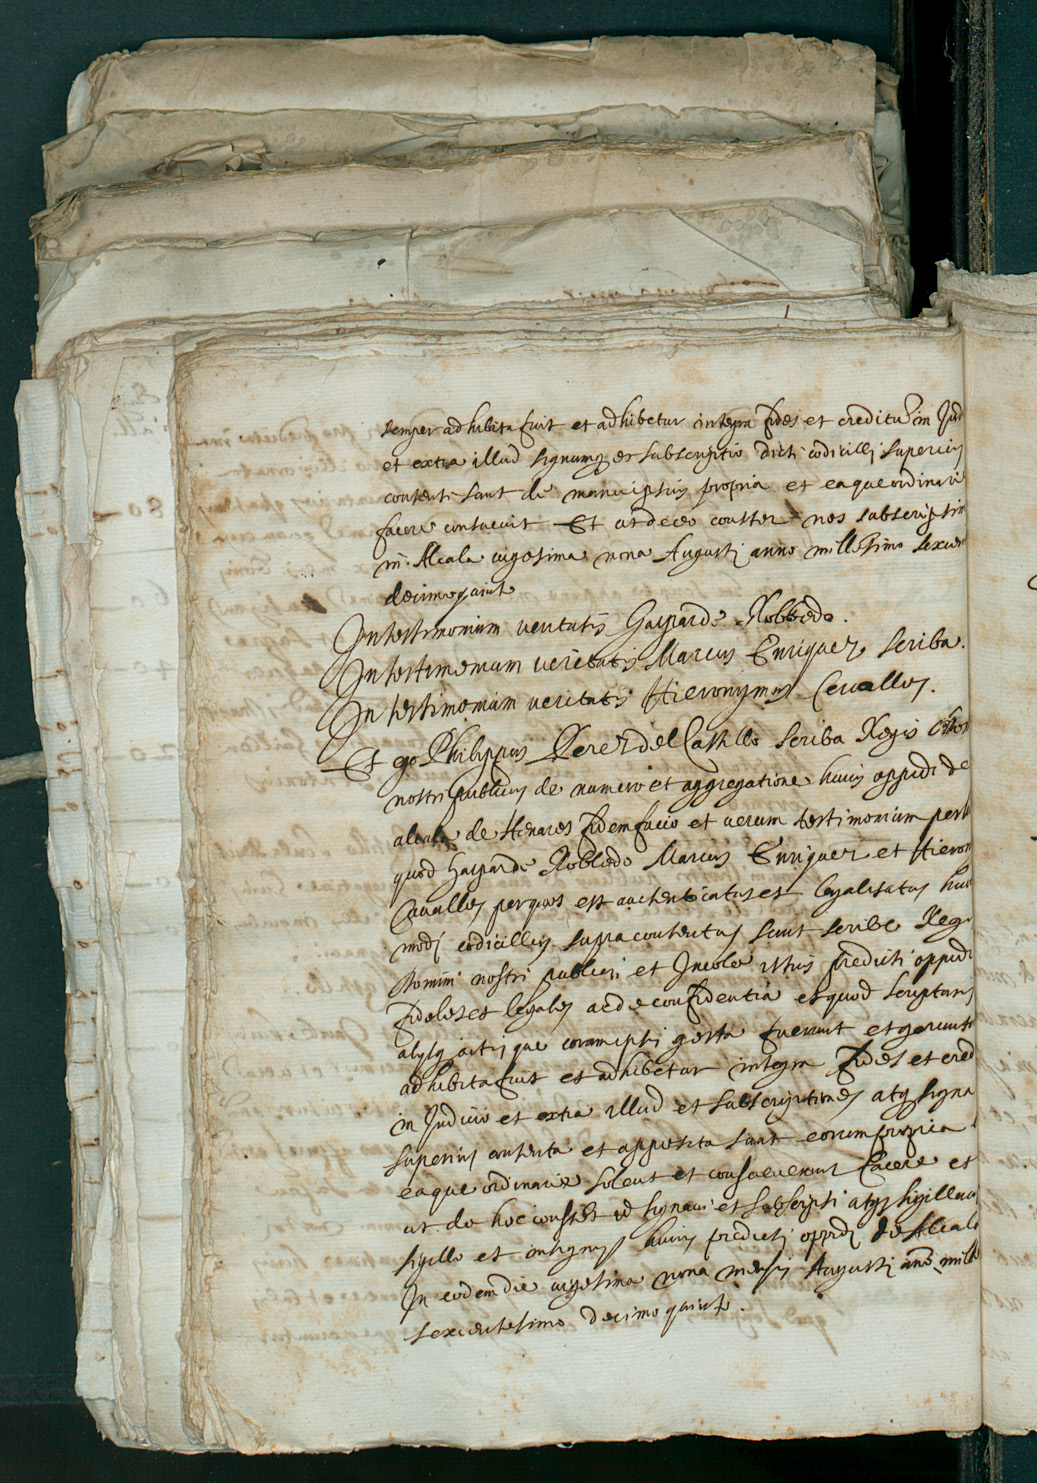 semper adhibita fuit et adhibetur integra fides et creditũ in Jud
et extra illud signumq et subscriptio dicti codicilli superius
contenti sunt de manu ipsius propria et ea que ordinarie
facere consuevit Et ut de eo constet nos subscripsim
in Alcala vigesima nona Augusti anno millesimo sexcen
decimo quint
In testimonium veritatis Gaspar de Robledo.
In testimonium veritatis Marcus Enriquez scriba.
In testimonium veritatis Hieronymus Cevallos.
Et ego Philippus Perez del Castillo scriba Regis
nostri publicus de numero et aggregatione huius oppidi de
alcala de Henares fidem facio et verum testimonium per
quod Gaspar de Robledo Marcus Enriquez et Hieron
Cavallos per quos est autenticatus et legalisatus hui
modi codicillus supra contentus sunt scribe Regi
Domini nostri publici et Incole istius predicti oppidi
fideles et legales ac de confidentia et quod scripturis
alysq actis que coram ipsis gesta fuerunt et gerunt
adhibita fuit et adhibetur integra fides et cred
in Judicio et extra illud et subscriptiones atq signa
superius contenta et apposita sunt eorum propria
ea que ordinarie solent et consueverunt facere et
ut de hoc constet id signavi et subscripsi atq sigillavi
sigillo et insignijs huius predicti oppidi de Alcala
In eodem die vigesima nona mensis Augusti anno mille
sexcentesimo decimo quinto.